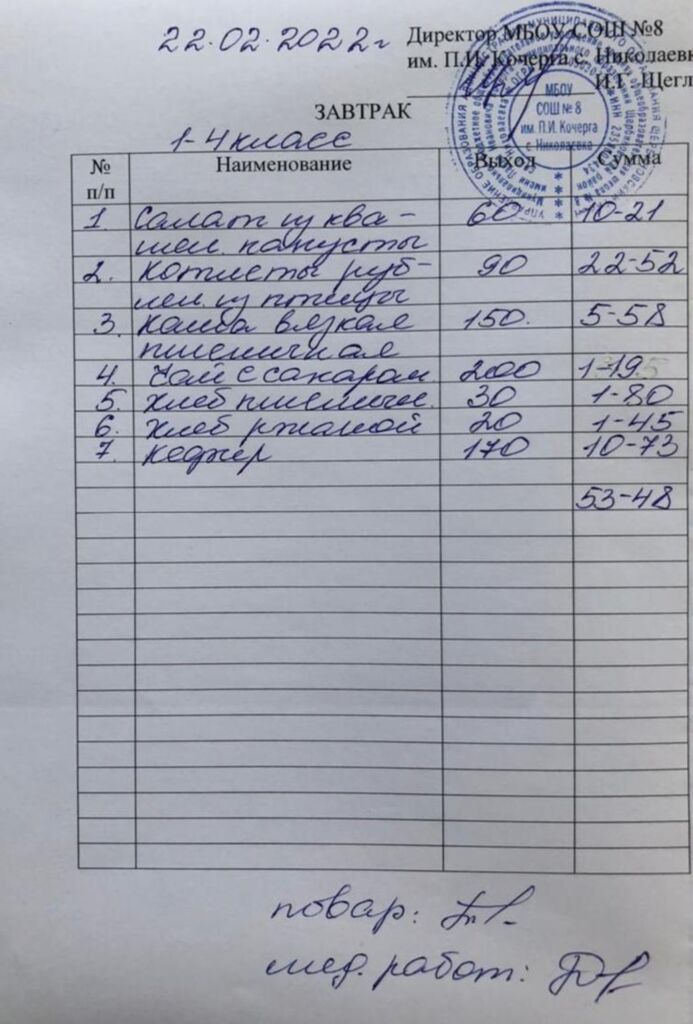 22.02.2022г
Директор МБОУ СОШ №8
им. П.И. Кочерга с. Николаевк
И.Г. Щегл
МБОУ
СОШ № 8
им. П.И. Кочерга
с. Николаевка
ЗАВТРАК
1-4 класс
№ п/п Наименование Выход Сумма
1. Салат из ква- 60 10-21
шен. капусты
2. Котлеты руб- 90 22-52
лен. из птицы
3. Каша вязкая 150. 5-58
пшеничная
4. Чай с сахаром 200 1-19
5. Хлеб пшеничн. 30 1-80
6. Хлеб ржаной 20 1-45
7. Кефир 170 10-73
53-48
повар:
мед. работ: